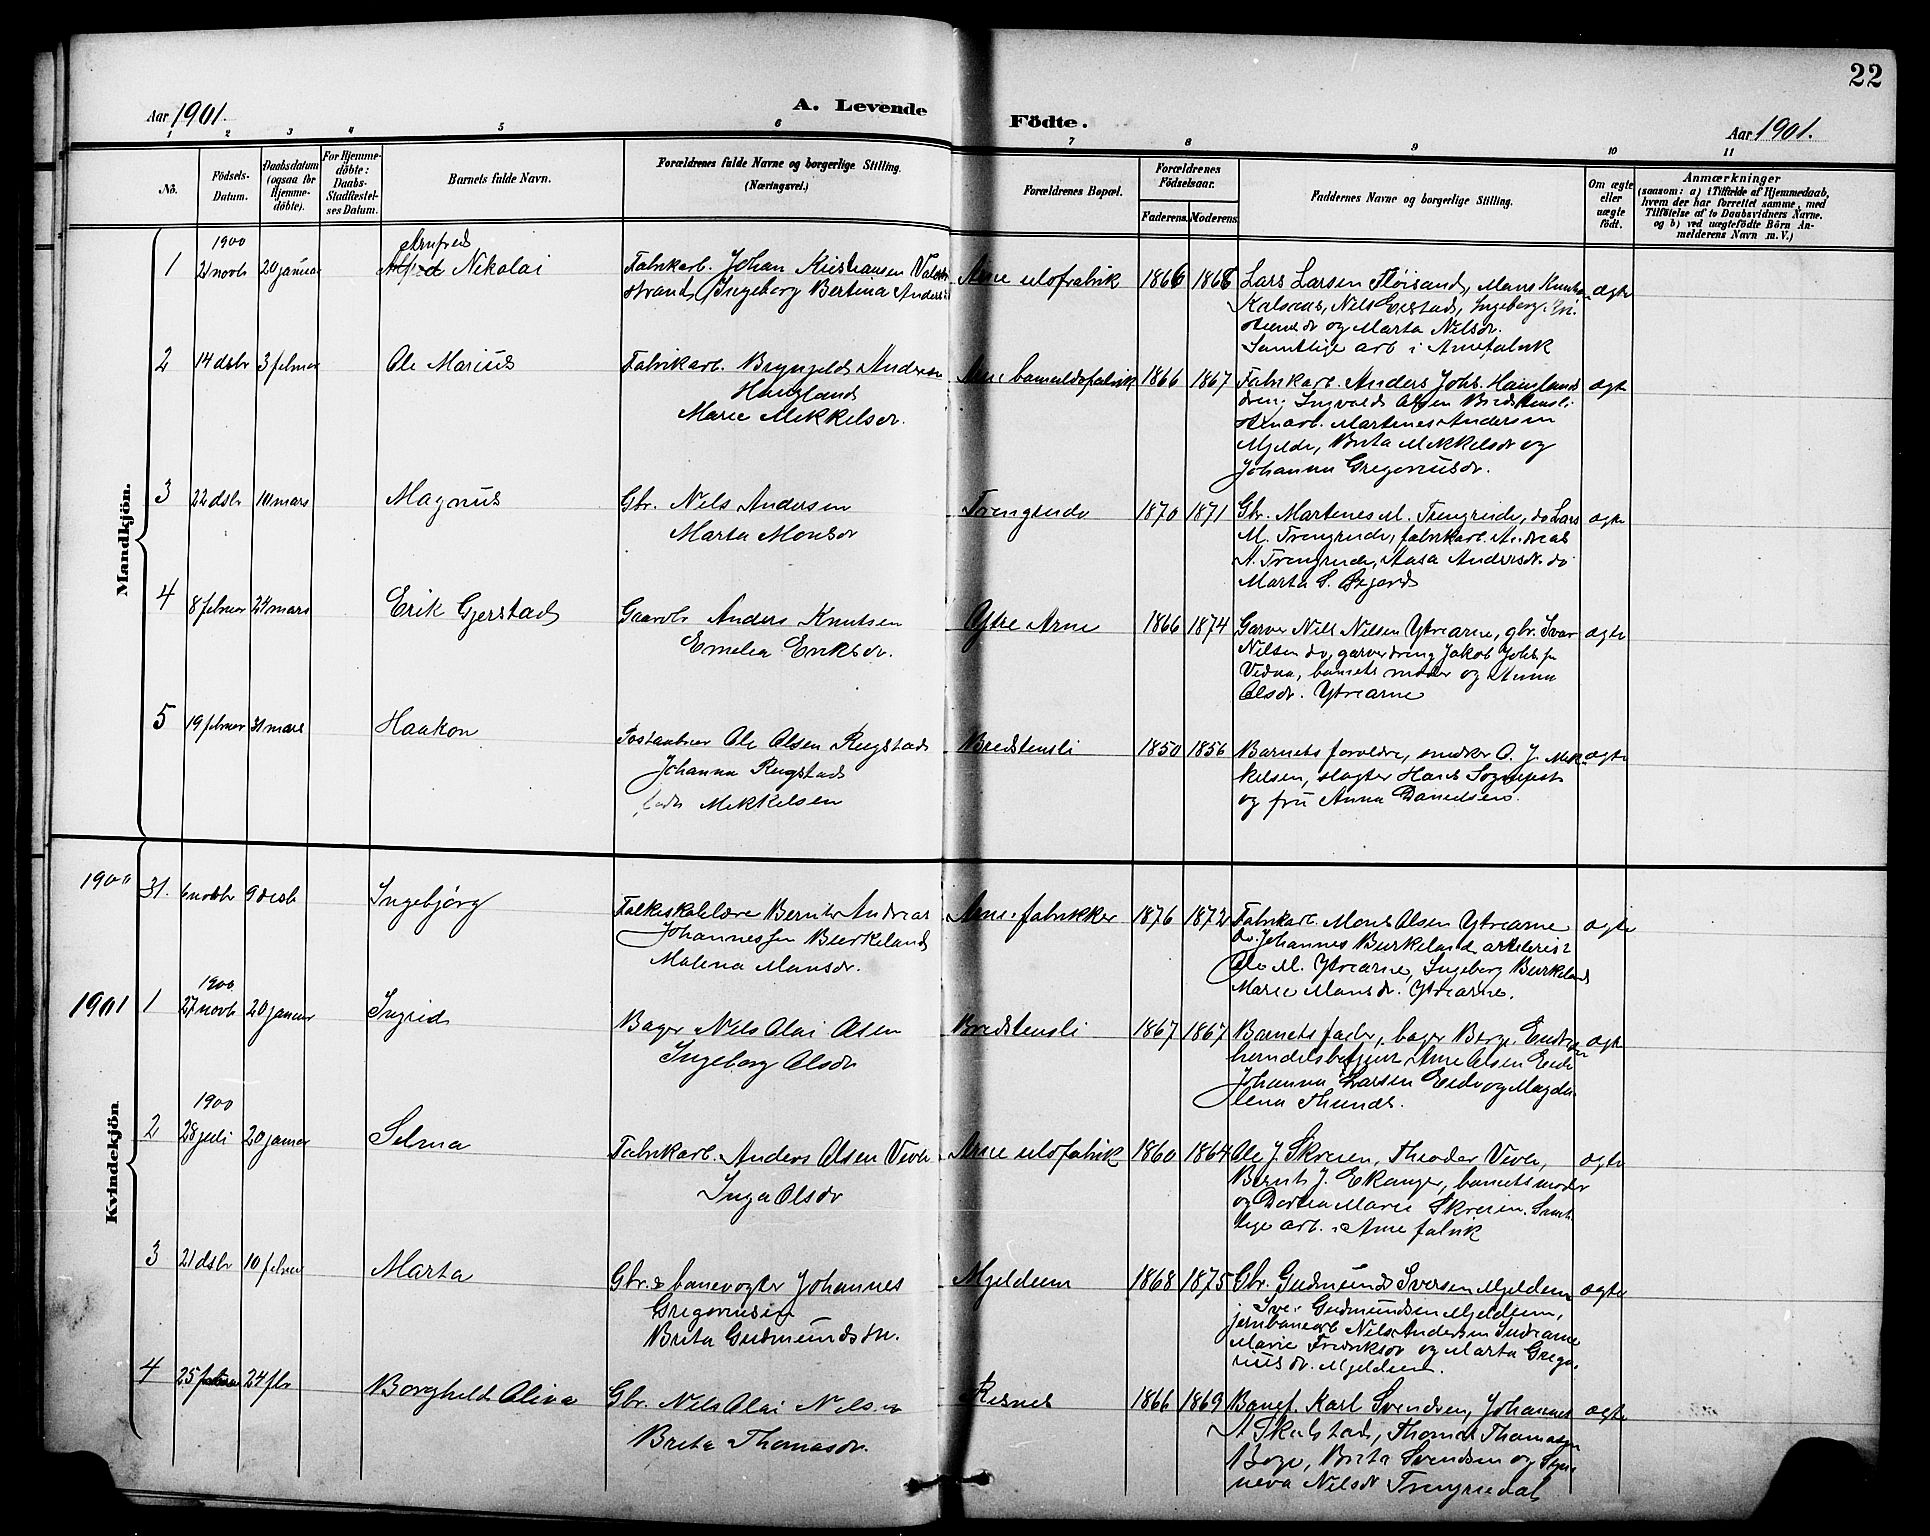 22
Aar 1901.
A. Levende
Födte.
Aar 1901.
1 2 3 4 5 6 7 8 9 10 11
No.
Födsels-Datum.
Daabsdatum (ogsaa for Hjemme-döbte).
For Hjemme-döbte: Daabs-Stadfæstel-ses Datum.
Barnets fulde Navn.
Forældrenes fulde Navne og borgerlige Stilling.
(Næringsvei.)
Forældrenes Bopæl.
Forældrenes Födselsaar.
Faderens. Moderens.
Faddernes Navne og borgerlige Stilling.
Om ægte eller uægte födt.
Anmærkninger
(saasom: a) i Tilfælde af Hjemmedaab,
hvem der har forrettet samme, med
Tilföielse af to Daabsvidners Navne.
og b) ved uægtefödte Börn An-
melderens Navn m. V.)
Mandkjön.
1 1900 21 novb 20 januar
Arnfred
Alfred Nikolai
Fabrikarb. Johan Kristiansen
strand, Ingeborg Bertina Anders
Arne uldfabrik 1866 1868
Lars Larsen Fløisand, Mons
Kalsaas, Nils Evestad, Ingeborg
og Marta Nilsdr.
Samtlige arb i Arnefabrik
ægte
2 14 dsbr 3 februar
Ole Marius
Fabrikarb. Bryngeld Andersen
Haugland
Marie Mikkelsdr.
Arne bomuldsfabrik 1866 1867
Fabrikarb. Anders Johs. Haugland
dreng Ingvald Olsen Bredstensli
stenarb. Martenes Andersen
Mjelde, Brita Mikkelsdr og
Johanna Gregoriusdr.
ægte
3 22 dsbr 10 mars
Magnus
Gbr. Nils Andersen
Marta Monsdr
Trengereide 1870 1871
Gbr. Martenes M. Trengereide, do Lars
M. Trengereide, fabrikarb. Andreas
A. Trengereide, Aasa Andersdr. do
Marta S.
ægte
4 8 februar 24 mars
Erik Gjerstad
Gaardbr Anders Knutsen
Emelia Eriksdr.
Ytre Arne 1866 1874
Garver Nils Nilsen Ytrearne, gbr. Ivar
Nilsen do, garverdreng Jakob Johs.
Vidnes, barnets moder og Anna
Olsdr. Ytrearne
ægte
5 19 februar 31 mars
Haakon
Postaabner Ole Olsen Rugstad
Johanna Rugstad
født Mikkelsen
Bredstensli 1850 1856
Barnets forældre, snedker O. J. Mik-
kelsen, slagter Hans
og fru Anna Danielsen.
ægte
Kvindekjön
1900 31. 6 novbr 9 desb
Ingebjørg
Folkeskolelærer Bernter Andreas
Johannessen Burkeland
Malena Monsdr.
Arne fabrikker 1876 1872
Fabrikarb. Mons Olsen Ytrearne
do. Johannes Burkeland
Ole M. Ytrearne, Ingeborg Burkeland
Marie Monsdr. Ytrearne.
ægte
1901 1 1900 27 novb 20 januar
Ingrid
Bager Nils Olai Olsen
Ingeborg Olsdr
Bredstensli 1867 1867
Barnets fader, bager Berge
handelsbetjent Arne Olsen Eide
Johanna Larsen Eide og Magda-
lena Thunes.
ægte
2 1900 28 juli 20 januar
Selma
Fabrikarb. Anders Olsen Vevle
Inga Olsdr
Arne uldfabrik 1860 1864
Ole J. Skreien, Theodor Vevle,
Bernt J. Ekanger, barnets moder
og Dortea Marie Skreien. Samt-
lige arb. i Arne fabrik
ægte
3 21 dsbr 10 februar
Marta
Gbr. & banevogter Johannes
Gregoriusen
Brita Gudmundsdr.
Mjeldeim 1868 1875
Gbr. Gudmund Iversen Mjeldeim
Iver Gudmundsen Mjeldeim,
jernbanearb Nils Andersen Indrearne
Marie Fredriksdr og Marta Grego-
riusdr. Mjeldeim.
ægte
4 25 24 fbr
Borghild Oliva
Gbr. Nils Olai Nilsen
Brita Thomasdr.
Risnes 1866 1869
Banef. Karl Svendsen, Johannes
A Skulstad, Thomas Thomassen
Boge, Brita Svendsen og Syn-
neva Nilsdr Trengeredal
ægte